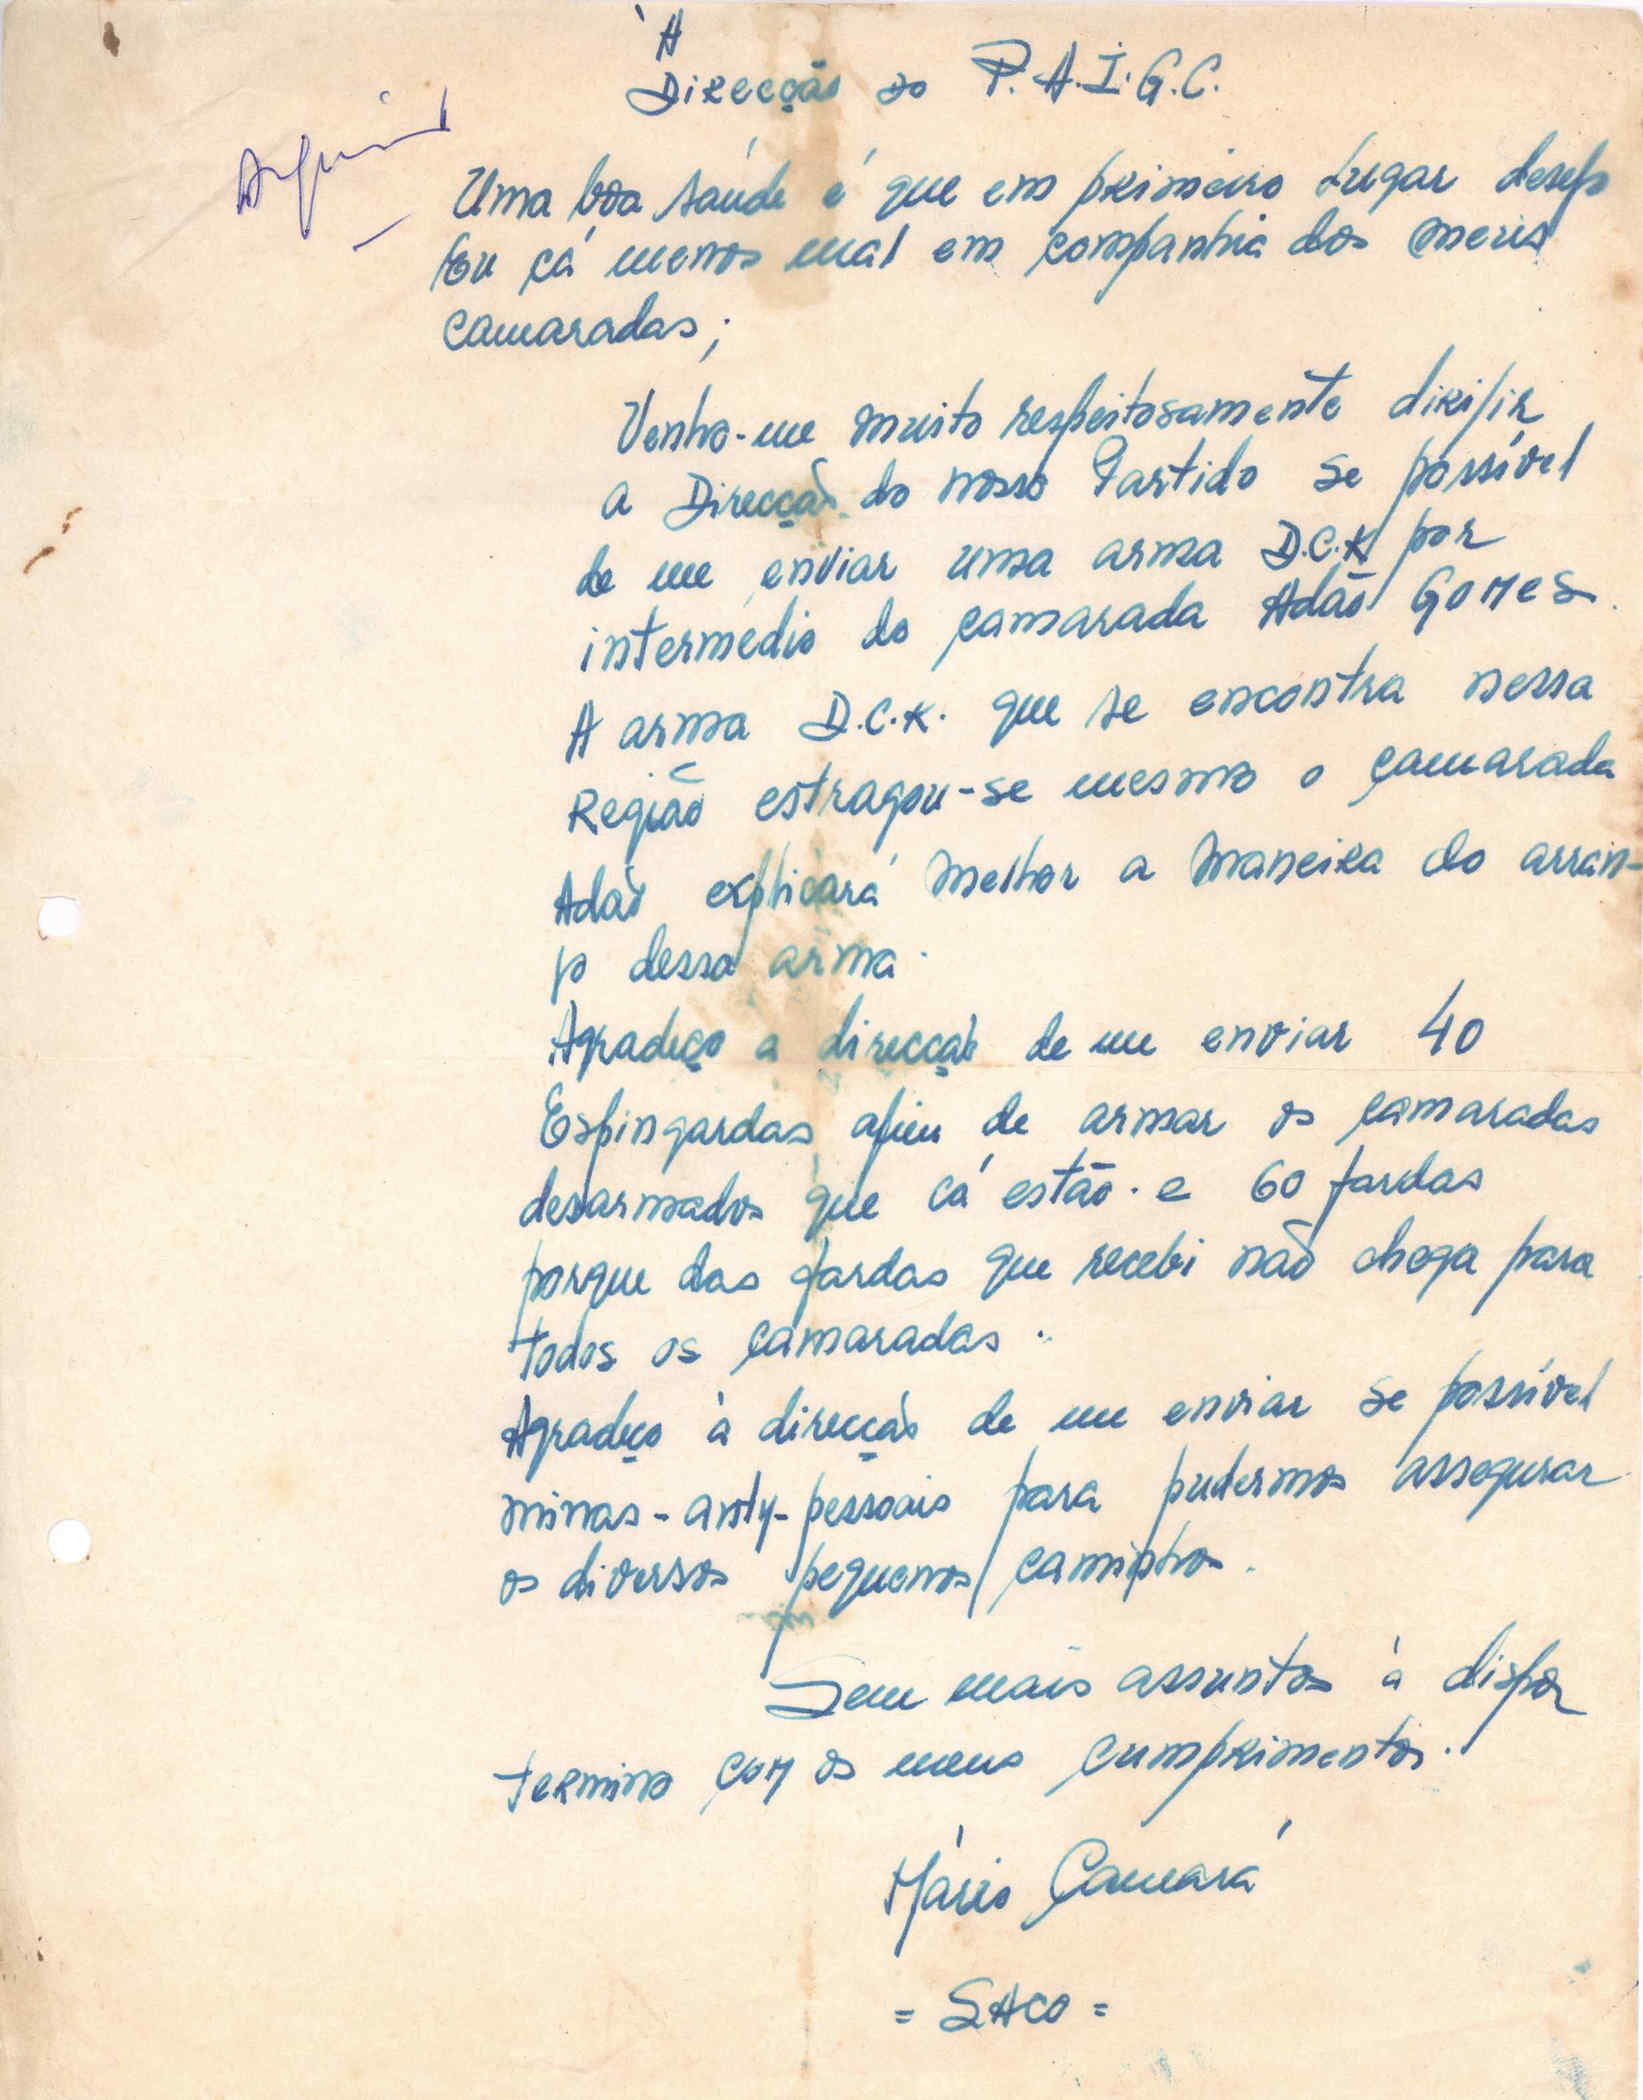 À
Direcção do P.A.I.G.C.
Uma boa saúde é que em primeiro lugar desejo
Eu cá menos mal em companhia dos meus
camaradas;
Venho-me muito respeitosamente dirijir
a Direcção do nosso Partido se possível
de me enviar uma arma D.C.K por
intermédio do camarada Adão Gomes.
A arma D.C.K. que se encontra nessa
Região estragou-se mesmo o camarada
Adão explicará melhor a maneira do arran-
jo dessa arma.
Agradeço a direcção de me enviar 40
Espingardas afim de armar os camaradas
desarmados que cá estão. e 60 fardas
porque das fardas que recebi não chega para
todos os camaradas.
Agradeço à direcção de me enviar se possível
minas-anty-pessoais para pudermos assegurar
os diversos pequenos caminhos.
Sem mais assuntos à dispor
termino com os meus cumprimentos.
Mário Camará
= SACO =